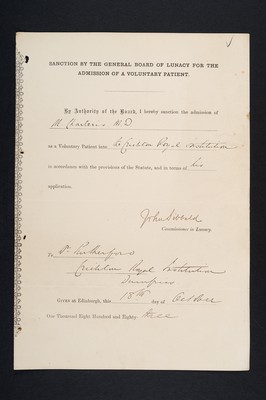 SANCTION BY THE GENERAL BOARD OF LUNACY FOR THE
ADMISSION OF A VOLUNTARY PATIENT.
By Authority of the Board, I hereby sanction the admission of
M. D
as a Voluntary Patient into Crichton Royal Institution
in accordance with the provisions of the Statute, and in terms of his
application.
John Sibbald
Commissioner in Lunacy.
To Dr Rutherford
Crichton Royal Institution
Dumfries
Given at Edinburgh, this 18th day of October
One Thousand Eight Hundred and Eighty-